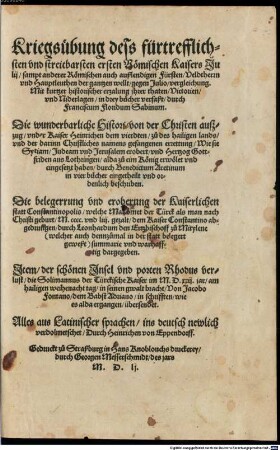 Kriegsübung deß fürtrefflich-
sten vnd streitbarsten ersten Römischen Kaisers Ju
lij / sampt anderer Römischen auch außlendigen Fürsten / Veldtherrn
vnd Hauptleuthen der gantzen welt / gegen Julio / vergleichung.
Mit kurtzer historischer erzalung ihrer thaten / Victorien /
vnd Niderlagen / in drey bücher verfaßt / durch
Franciscum Floridum Sabinum.
Die wunderbarliche Histori / von der Christen auß-
zug / vnder Kaiser Heinrichen dem vierdten / zů dez hailigen lande /
vnd der darinn Christliches namens gefangenen errettung / Wie sie
Syriam / Iudeam vnd Jerusalem erobert / vnd Hertzog Gott-
friden auß Lothringen / alda zů ein König erwölet vnd
eingesetzt haben / durch Benedictum Aretinum
in vier bücher eingetheilt vnd or-
denlich beschriben.
Die belegerrung vnd eroberung der Kaiserlichen
statt Constantinopolis / welche Mahomet der Türck als man nach
Christi geburt / M. cccc. vnd liij. gezalt / dem Kaiser Constantino ab-
gedrungken / durch Leonhardum den Ertzbischoff zů Mitylene
( welcher auch dennzmal in der statt belegert
geweßt ) summarie vnd warhaff-
tig dargegeben.
Item / der schönen Insel vnd porten Rhodus ver-
lust / die Solimannus der Türckische Kaiser im M. D. xxij. jar / am
hailigen weihenacht tag / in seinen gwalt bracht / Von Jacobo
Fontano / dem Babst Adriano / in schrifften / wie
es alda ergangen / übersendet.
Alles auß Latinischer sprachen / ins deutsch newlich
verdolmetschet / Durch Heinrichen von Eppendorff.
Gedruckt zů Straßburg in Hans Knoblouchs druckerey /
durch Georgen Messerschmidt / des jars
M. D. lj.